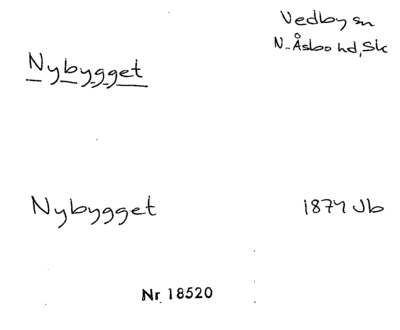 Vedby sn
N. Åsbo hd, Sk
Nybygget
Nybygget 1874 Jb
Nr 18520